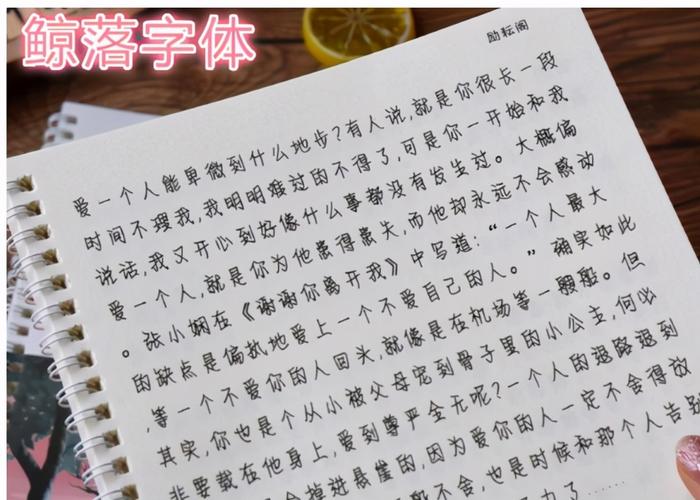 鲸落字体
励耘阁
爱一个人能卑微到什么地步?有人说,就是你很长一段
时间不理我,我明明难过的不得了,可是你一开始和我
说话,我又开心到好像什么事都没有发生过。大概偏
爱一个人,就是你为他患得患失,而他却永远不会感动
。张小娴在《谢谢你离开我》中写道:“一个人最大
的缺点是偏执地爱上一个不爱自己的人。”确实如此
,等一个不爱你的人回头,就像是在机场等一艘船。但
其实,你也是个从小被父母宠到骨子里的小公主,何必
非要栽在他身上,爱到尊严全无呢?一个人的退路退到
会掉进悬崖的,因为爱你的人一定不会舍得放
不舍,也是时候和那个人告别
了……